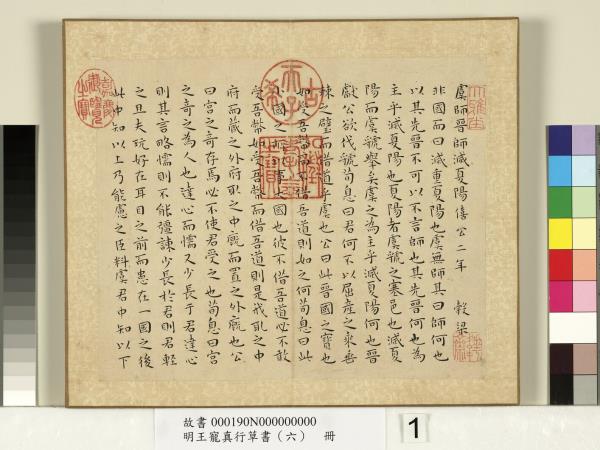 虞師晉師滅夏陽僖公二年 穀梁
非國而曰滅重夏陽也虞無師其曰師何也
以其先晉不可以不言師也其先晉何也為
主乎滅夏陽也夏陽者虞虢之塞邑也滅夏
陽而虞虢舉矣虞之為主乎滅夏陽何也晉
獻公欲伐虢荀息曰君何不以屈產之乘垂
棘之璧而借道乎虞也公曰此晉國之寶也
如受吾幣而不借吾道則如之何荀息曰此
小國之所以事大國也彼不借吾道必不敢
受吾幣如受吾幣而借吾道則是我取之中
府而藏之外府取之中廄而置之外廄也公
曰宮之奇存焉必不使君受之也荀息曰宮
之奇之為人也達心而懦又少長于君達心
則其言略懦則不能彊諫少長於君則君輕
之且夫玩好在耳目之前而患在一國之後
此中知以上乃能慮之臣料虞君中知以下
古稀天子
嘉慶御覽之寶
故書 000190N000000000
明王寵真行草書(六) 冊
1